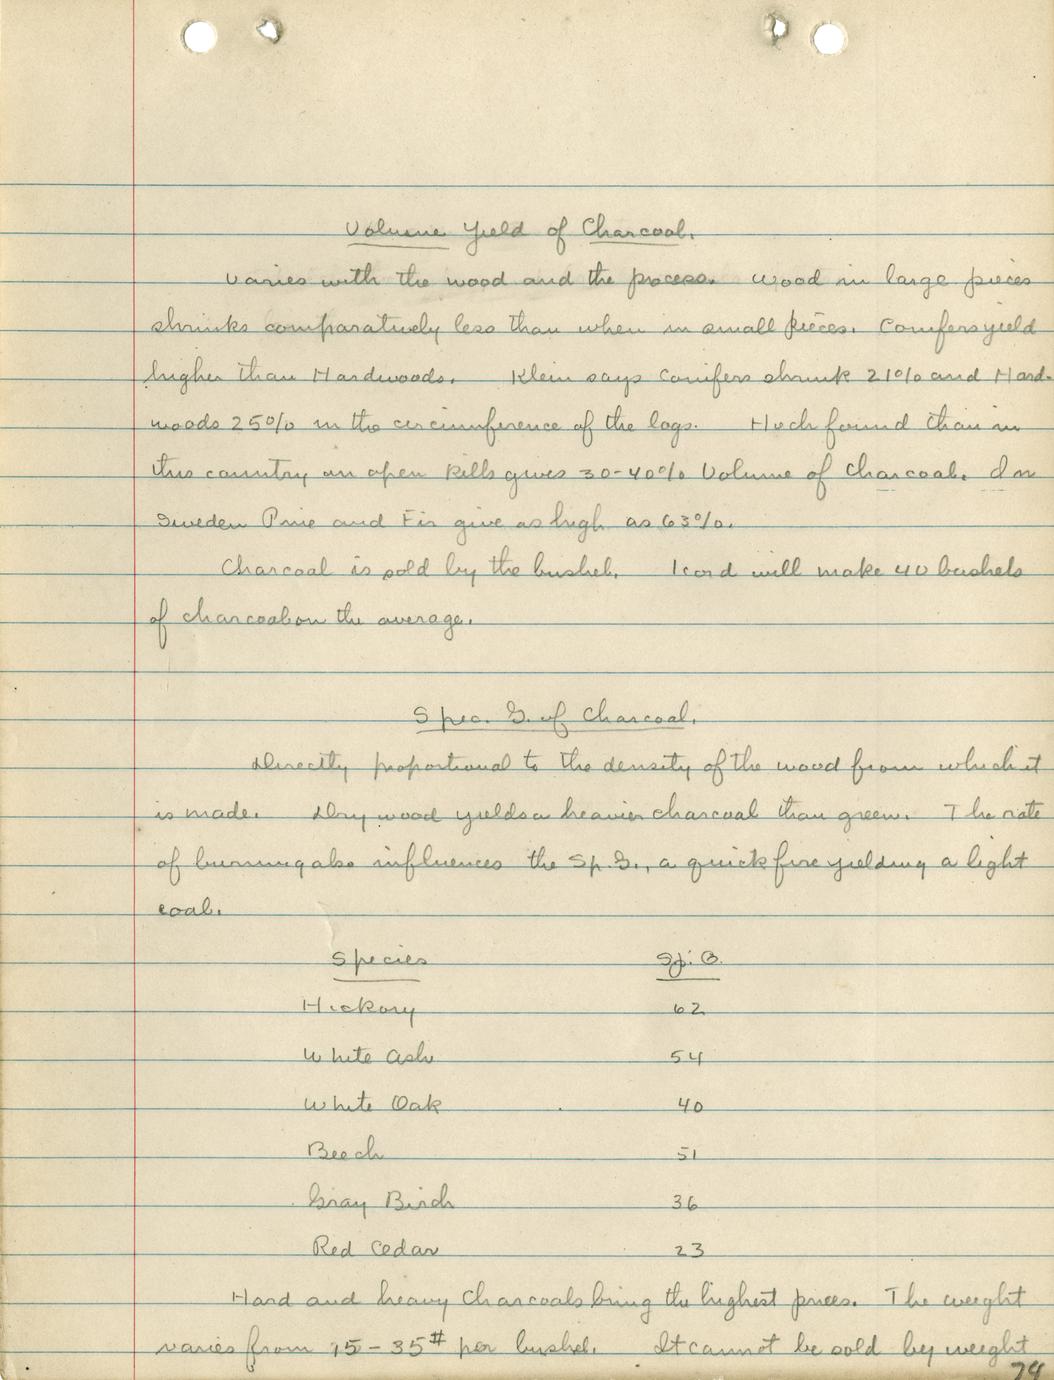 Volume Yield of Charcoal.
Varies with the wood and the process. Wood in large pieces
shrinks comparatively less than when in small pieces. Conifers yield
higher than Hardwoods. Klein says Conifers shrink 21% and Hard-
woods 25% in the circumference of the logs. found than in
this country an open kills gives 30-40% Volume of Charcoal. In
Sweden Pine and Fir give as high as 63%.
Charcoal is sold by the bushel. 1 cord will make 40 bushels
of charcoal on the average.
Spec. G. of Charcoal.
Directly proportional to the density of the wood from which it
is made. Dry wood yields a heavier charcoal than green. The rate
of burning also influences the Sp. G., a quick fire yielding a light
coal.
Species Sp. G.
Hickory 62
White Ash 54
White Oak 40
Beech 51
Gray Birch 36
Red Cedar 23
Hard and heavy Charcoals bring the highest prices. The weight
varies from 15-35# per bushel. It cannot be sold by weight